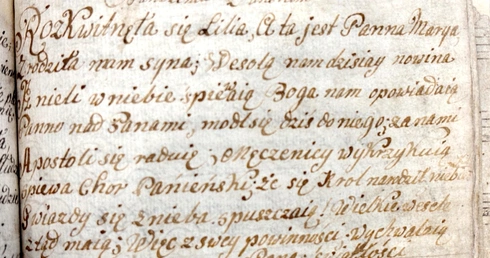 Rozkwitnęła się Lilia, A ta jest Panna Marya
Zrodziła nam syna; Wesoła nam dzisiay nowina
w niebie spiewaią Boga nam opowiadaią
Panno nad Pannami, modl się dziś do niego; za nami
Apostoli się raduię Męczenicy wykrzykuią
Spiewa Chor Panieński; że się Krol narodził
Gwiazdy się z nieba spuszczaią! Wielkie wesele
ztąd maią; Więc z swey powinności wychwalaią